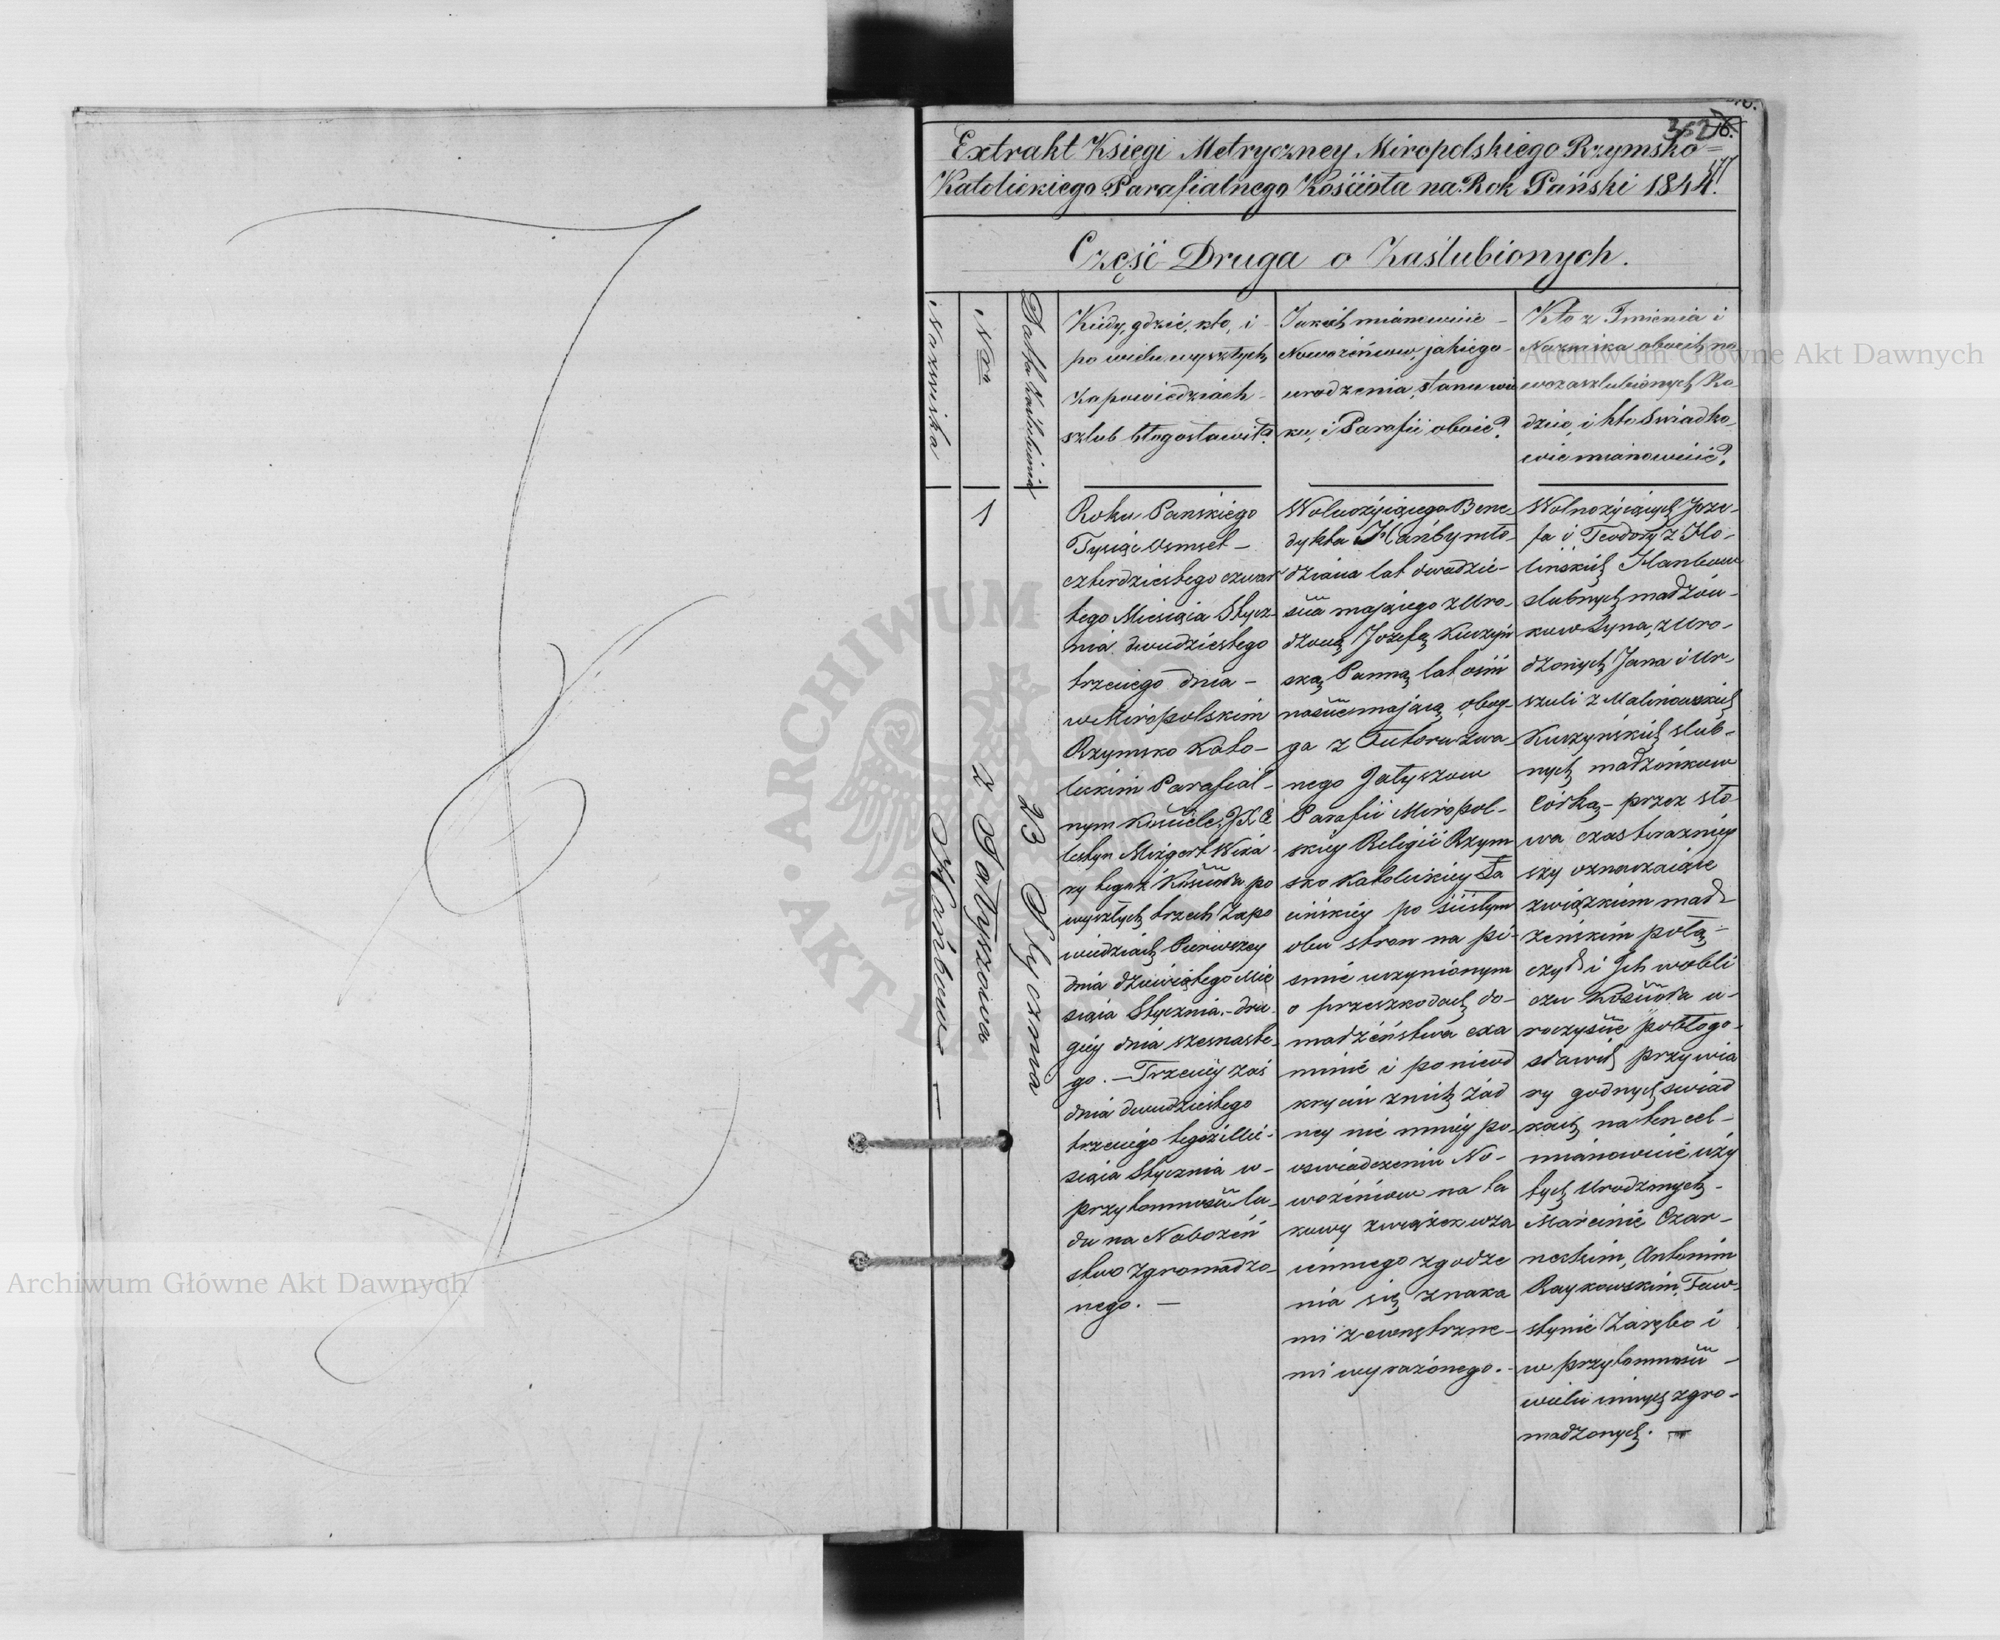 352
16.
Extrakt Księgi Metryczney Miropolskiego Rzymsko=
Katolickiego Parafialnego Kościoła na Rok Pański 1844.
Część Druga o Zaślubionych.
Nazwiska
Nro
Data Zaślubienia
Kiedy, gdzie, kto, i
po wielu wyszłych
Zapowiedziach
szlub błogosławił?
Jakich mianowicie
Nowożeńcow, jakiego
urodzenia, stanu wie
ku, i Parafii oboie?
Kto z Imienia i
Nazwiska oboich no
wozaszlubionych Ro
dzice, i kto Swiadko
wie mianowicie?
Hańbow
1
z Jatyszowa
23 Stycznia
Roku Panskiego
Tysiąc Osmset
czterdziestego czwar
tego Miesiąca Stycz-
nia dwudziestego
trzeciego dnia
w Miropolskim
Rzymsko Kato-
lickim Parafial-
nym Kościele, JX Ce
lestyn Mizgert Wika
ry tegoż Kościoła po
wyszłych trzech Zapo
wiedziach Pierwszey
dnia dziewiątego Mie
siąca Stycznia, dru
giey dnia szesnaste-
go. Trzeciey zaś
dnia dwudziestego
trzeciego tegoż Mie-
siąca Stycznia w
przytomności lu-
du na Nabożeń
stwo zgromadzo-
nego.
Wolnożyiącego Bene
dykta Hańby mło-
dziana lat dwadzie-
ścia maiącego z Uro-
dzoną Jozefą Kuczyń
ską Panną lat ośm
naście maiącą, oboy-
ga z Futoru zwa-
nego Jatyszow
Parafii Miropol-
skiey Religii Rzym
sko Katolickiey Ła
cińskiey po ścisłym
obu stron na pi-
śmie uczynionym
o przeszkodach do
madżeństwa exa
minie i po nieod
kryciu z nich żad
ney nie mniey po
oswiadczeniu No-
wożeńcow na ta
kowy związek wza
iemnego zgodze
nia się znaka
mi zewnętrzne-
mi wyrażonego.
Wolnożyiących Joze-
fa i Teodory z Ho-
lińskich Hanbow
slubnych madżon-
kow Syna, z Uro-
dzonych Jana i Ur-
szuli z Malinowskich
Kuczyńskich slub-
nych madżonkow
Corką, przez sło
wa czas terazniey
szy oznaczaiące
związkiem mad
żeńskim połą-
czył i Ich w obli
czu Kościoła u-
roczyście pobłogo-
sławił przy wia
ry godnych swiad
kach na ten cel
mianowicie uży
tych Urodzonych
Marcinie Czar-
neckim, Antonim
Raykowskim, Faw-
stynie Zarębo i
w przytomności
wielu innych zgro-
madzonych.
ARCHIWUM
AKT
Archiwum Główne Akt Dawnych
Archiwum Główne Akt Dawnych